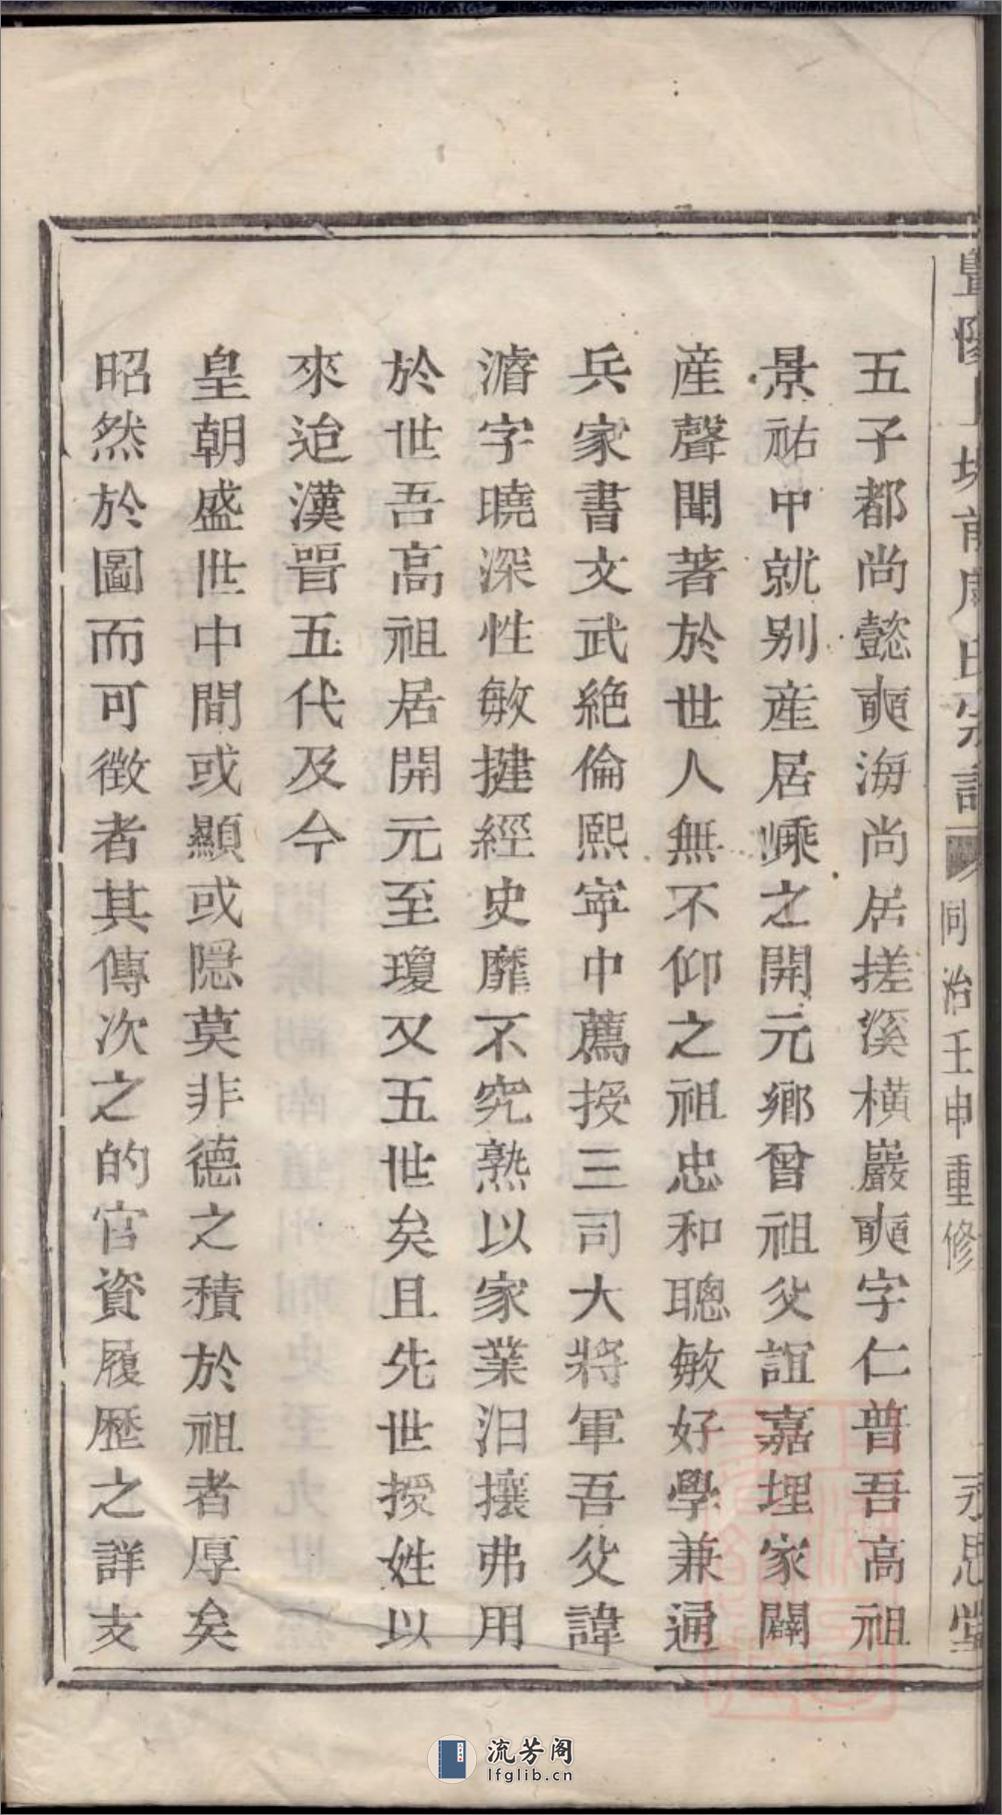 五子都尚懿奭海尚居搓溪橫巖奭字仁普吾高祖
景祐中就别産居嵊之開元鄉曾祖父誼嘉埋家闢
産聲聞著於世人無不仰之祖忠和聰敏好學兼通
兵家書文武絶倫熙寜中薦授三司大將軍吾父諱
濬字曉深性敏揵經史靡不究熟以家業汨攘弗用
於世吾高祖居開元至瓊又五世矣且先世授姓以
來迨漢晋五代及今
皇朝盛世中間或顯或隠莫非德之積於祖者厚矣
昭然於圖而可徴者其傳次之的官資履歷之詳支
同治壬申重修
永思堂
流芳阁
lfglib.cn